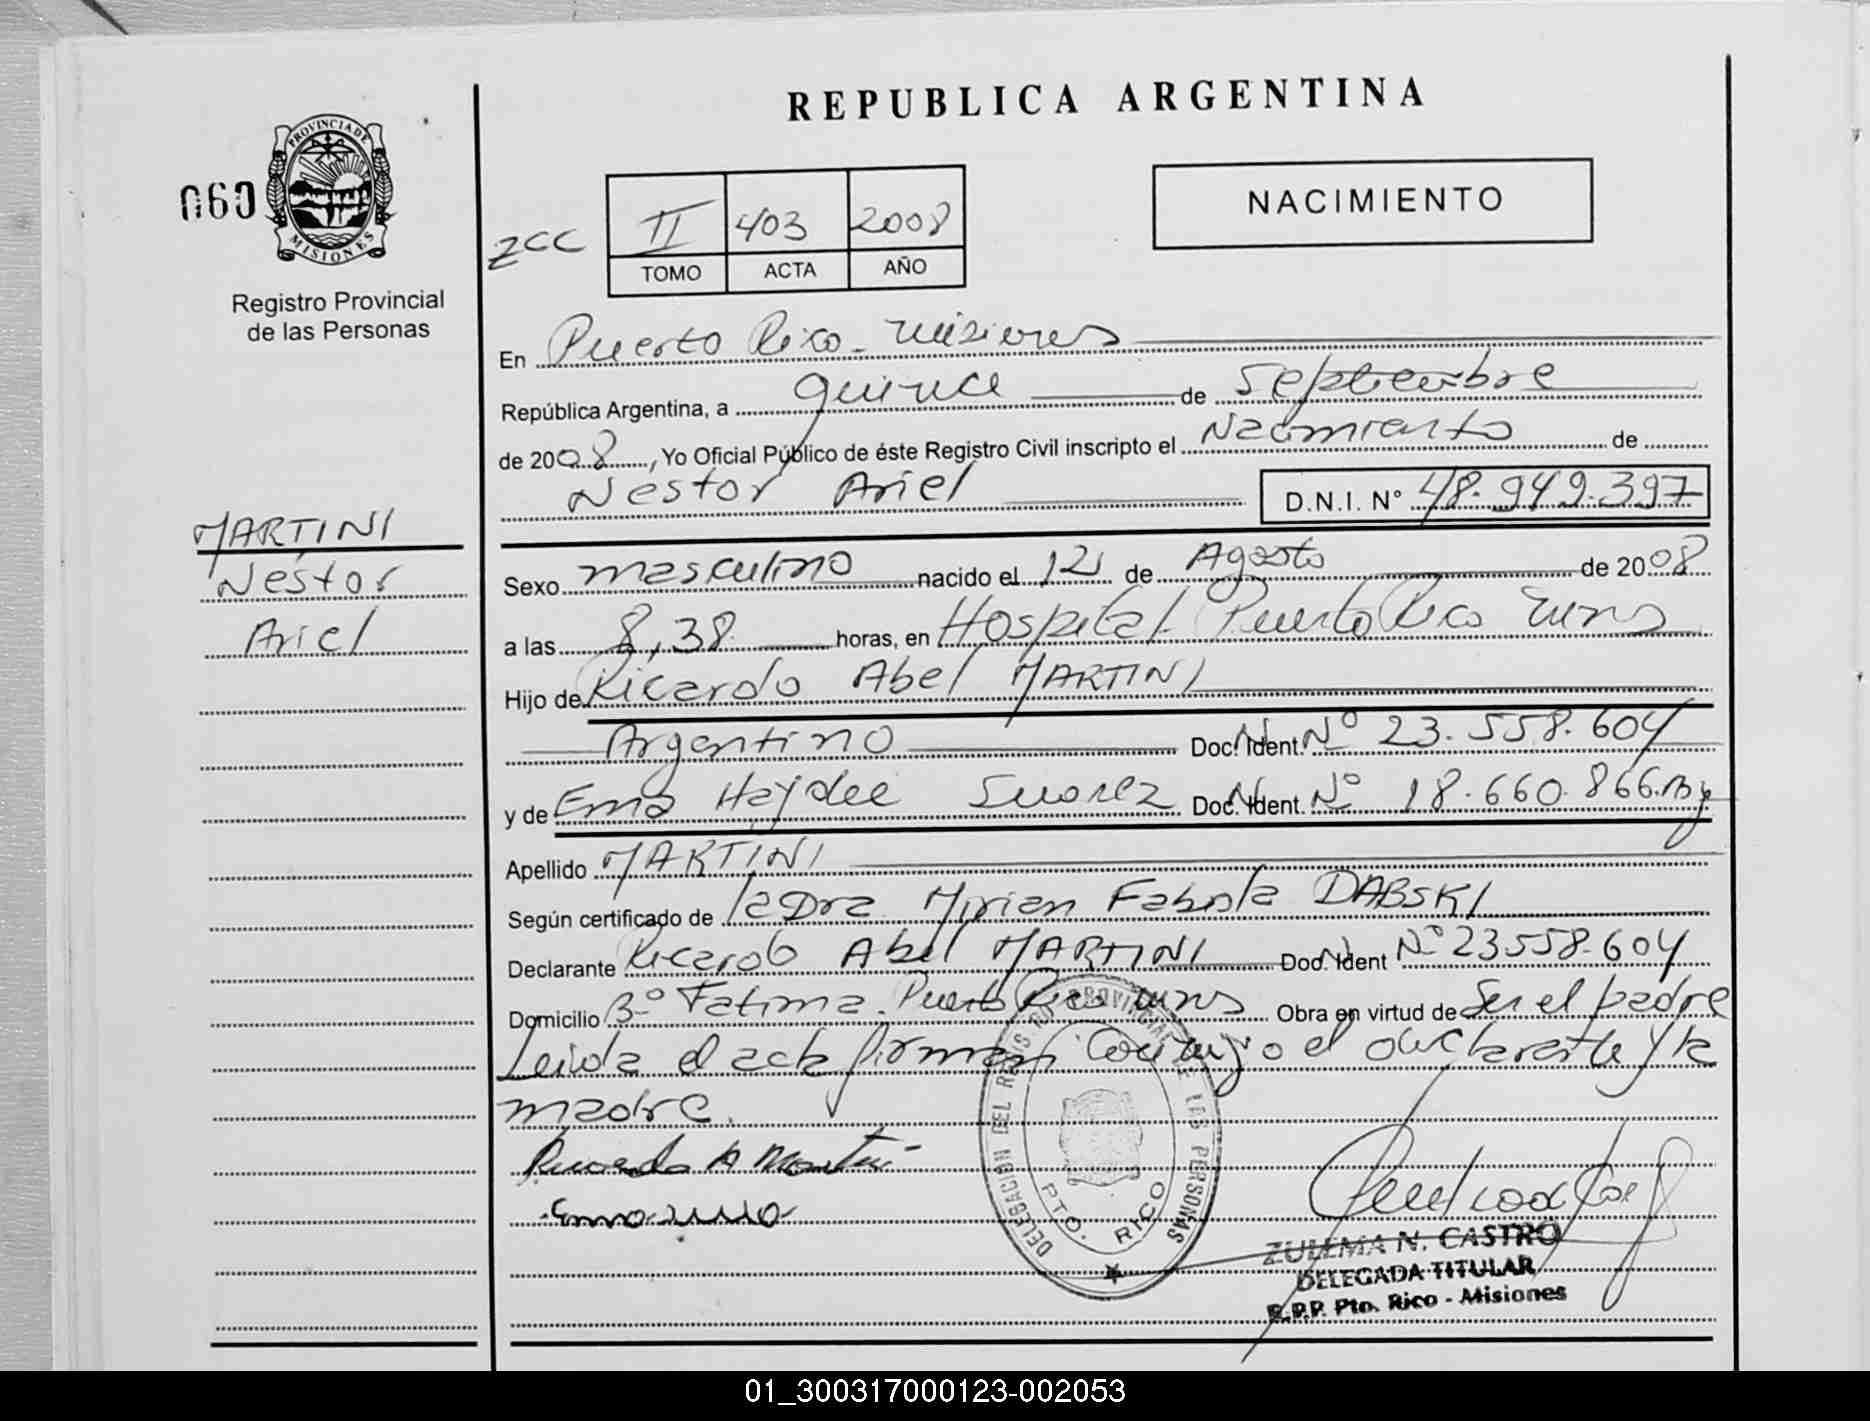 REPUBLICA ARGENTINA
PROVINCIA DE MISIONES
060
Registro Provincial
de las Personas
ZCC
II 403 2008
TOMO ACTA AÑO
NACIMIENTO
En Puerto Rico - Misiones
República Argentina, a quince de Septiembre
de 2008, Yo Oficial Público de éste Registro Civil inscripto el Nacimiento de
Nestor Ariel D.N.I. N° 48.949.397
MARTINI
Néstor
Ariel
Sexo masculino nacido el 12 de Agosto de 2008
a las 8,38 horas, en Hospital Puerto Rico Mns
Hijo de Ricardo Abel MARTINI
Argentino Doc. Ident. N° 23.558.604
y de Ema Haydee Suarez Doc. Ident. N° 18.660.866
Apellido MARTINI
Según certificado de la Dra Mirian Fabiola DABSKI
Declarante Ricardo Abel MARTINI Doc. Ident N° 23558.604
Domicilio B° Fatima. Puerto Rico Mns Obra en virtud de Ser el padre
Leida el acta firman conmigo el declarante y la
madre.
Ricardo A Martini
DELEGACION DEL REGISTRO PROVINCIAL DE LAS PERSONAS
PTO. RICO
ZULEMA N. CASTRO
DELEGADA TITULAR
R.P.P. Pto. Rico - Misiones
01_300317000123-002053